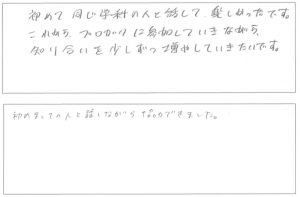 初めて同じ学科の人と話して、楽しかったです。
これから、プロジェクトに参加していきながら、
知り合いを少しずつ増やしていきたいです。
初めましての人と話しながら できました。